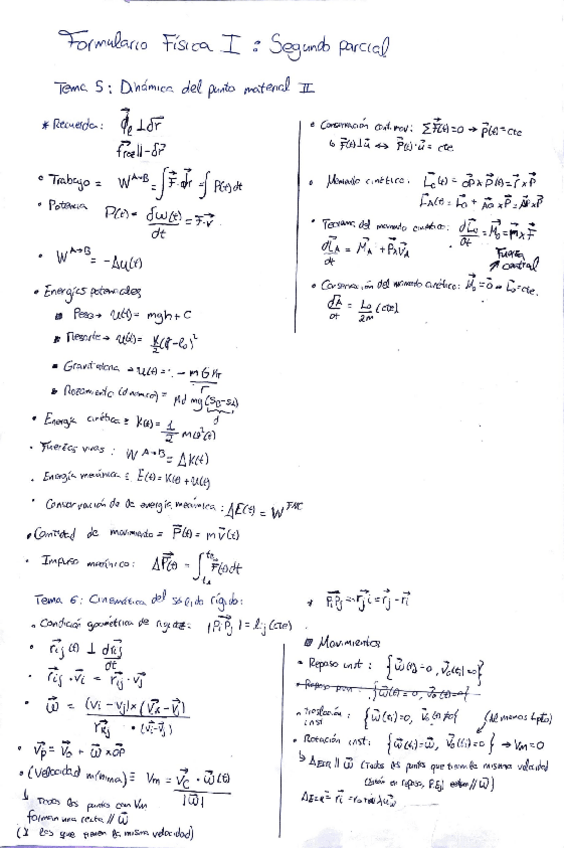 Formulario Física I : Segundo parcial
Tema 5: Dinámica del punto material II
* Recuerda: φ⃗e ⊥ δr⃗
f⃗roz ∥ -δr⃗
• Trabajo = W^(A→B) = ∫ F⃗·dr⃗ = ∫ P(t)dt
• Potencia P(t) = δW(t)/dt = F⃗·v⃗
• W^(A→B) = -Δu(t)
• Energías potenciales
Peso → u(t) = mgh + C
Resorte → u(t) = K/2 (l-l₀)²
Gravitatoria → u(t) =
Rozamiento (dinámico) = μd mg
• Energía cinética = K(t) = 1/2 mv²(t)
• Fuerzas vivas : W^(A→B) = Δk(t)
• Energía mecánica = E(t) = K(t) + u(t)
• Conservación de la energía mecánica : ΔE(t) = W^FNC
• Cantidad de movimiento = P⃗(t) = m v⃗(t)
• Impulso mecánico: ΔP⃗(t) = ∫ F⃗(t)dt
• Conservación cant. mov: ΣF⃗(t)=0 → P⃗(t)=cte
↳ F⃗(t)⊥u⃗ ↔ P⃗(t)·u⃗ = cte.
• Momento cinético: L⃗o(t) = OP⃗ x P⃗(t) = r⃗ x P⃗
L⃗A(t) = L⃗o + AO⃗ x P⃗ = AP⃗ x P⃗
• Teorema del momento cinético: dL⃗o/dt = M⃗o = r⃗ x F⃗
dL⃗A/dt = M⃗A + P⃗ x v⃗A
Fuerza
central
• Conservación del momento cinético: M⃗o = 0 → L⃗o = cte.
dA/dt = Lo/2m (cte)
Tema 6: Cinemática del sólido rígido:
• Condición geométrica de rigidez: |PiPj⃗| = lij (cte)
• r⃗ij(t) ⊥ dr⃗ij/dt
• r⃗ij · v⃗i = r⃗ij · v⃗j
• ω⃗ = (vi - vj) x (v⃗k - v⃗j) / r⃗kj · (v⃗i-v⃗j)
• v⃗p = v⃗o + ω⃗ x OP⃗
• (Velocidad mínima) = Vm = v⃗c · ω⃗(t) / |ω⃗|
↳ Todos los puntos con Vm
forman una recta // ω⃗
(y los que tienen la misma velocidad)
* PiPj⃗ = r⃗ji = r⃗j - r⃗i
Movimientos
• Reposo inst : {ω⃗(ti)=0, v⃗o(ti)=0}
• Traslación inst : {ω⃗(ti)=0, v⃗o(ti)≠0}
(Al menos 1 pto)
• Rotación inst: {ω⃗(ti)=ω⃗, v⃗o(ti)=0} → Vm=0
↳ ∥ ω⃗ (Todos los puntos que tienen la misma velocidad